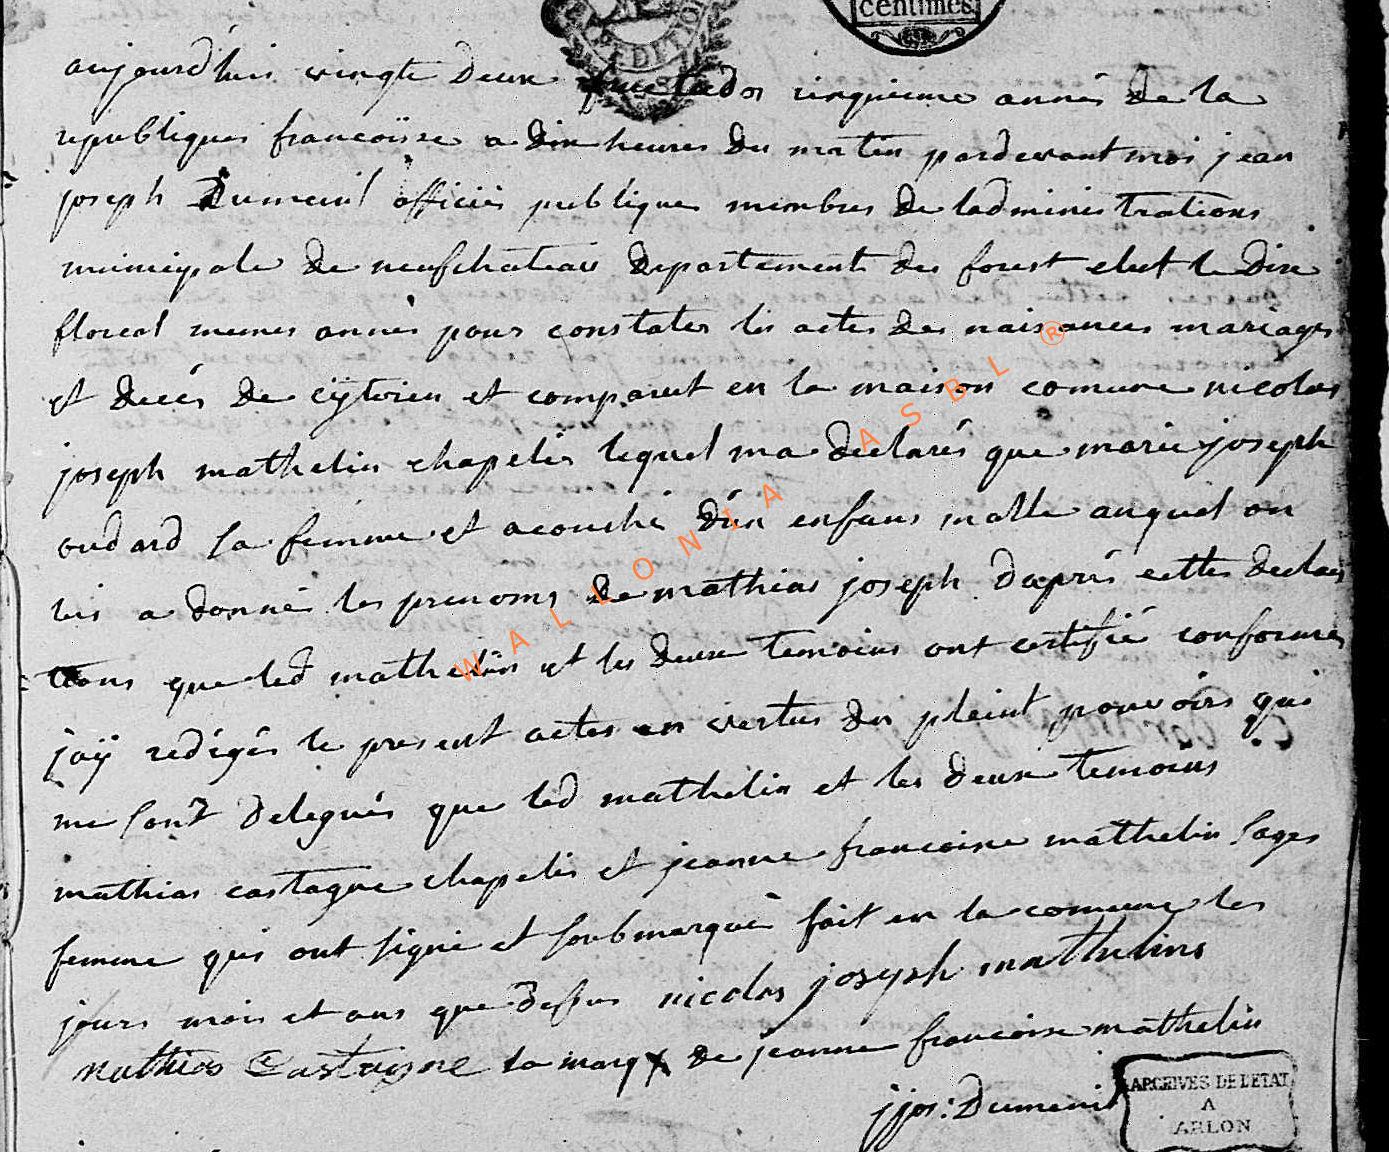 EXPEDITION
centimes
aujourd'huis vingte deux fructador cinquieme anneé de la
republiques francoisse a dix heures du matin pardevant moi jean
joseph Dumenil officiés publique membres de ladministrations
municipale de neufchateau departement des forest elut le dix
floreal memes anneé pour constater les actes des naissances mariages
et decés de cytoien et comparut en la maison comune nicolas
joseph mathelin chapelié lequel ma declarés que marie joseph
oudard sa femme et acouché d'un enfans malle auquel on
lui a donné les prenoms de mathias joseph daprés cette declara
tions que led mathelin et les deux temoins ont certifié conforme
jaÿ redégés le present actes en vertus du pleint pouvoirs qui
me sont delegués que led mathelin et les deux temoins
mathias castagne chapelié et jeanne francoise mathelin sages
femme qui ont signé et soubmarqué fait en la comune les
jours mois et ans que dessus nicolas joseph mathelins
mathias Castaigne la marq X de jeanne francoise mathelin
jjos: Dumenil
ARCHIVES DE L'ETAT
A
ARLON
WALLONIA ASBL ®